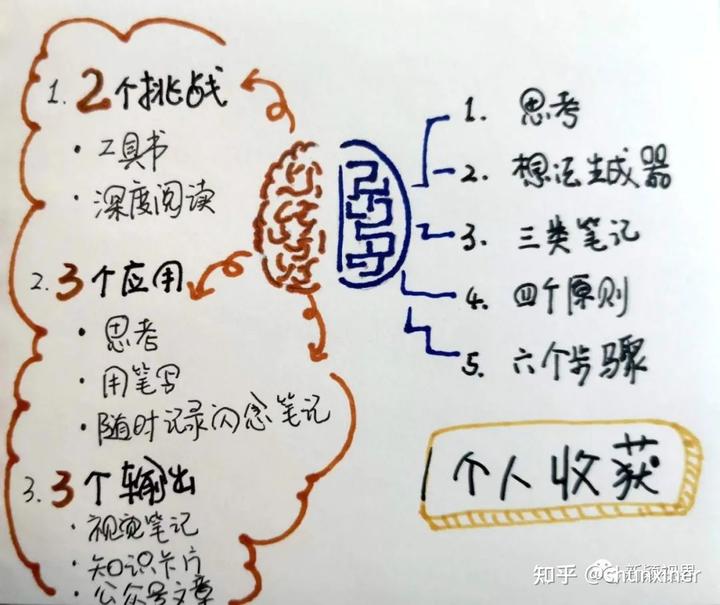 1. 2个挑战
· 工具书
· 深度阅读
2. 3个应用
· 思考
· 用笔写
· 随时记录闪念笔记
3. 3个输出
· 视觉笔记
· 知识卡片
· 公众号文章
1. 思考
2. 想法生成器
3. 三类笔记
4. 四个原则
5. 六个步骤
个人收获
知乎